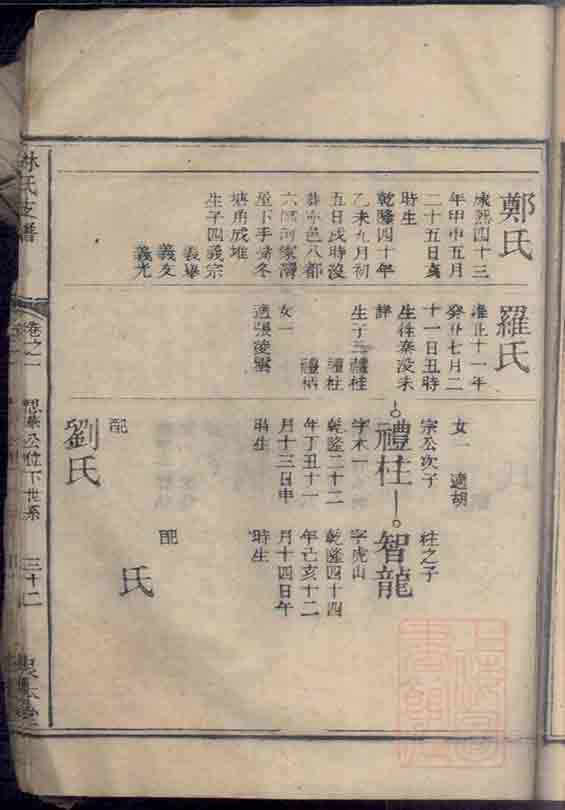 鄭氏
康熙四十三
年甲申五月
二十五日亥
時生
乾隆四十年
乙未九月初
五日戌時沒
葬
邑八都
六
河家灣
屋下手
冬
塘角成堆
生子四義宗
義舉
義友
義光
羅氏
雍正十一年
癸丑七月二
十一日丑時
生往秦没未
詳
生子三禮桂
禮柱
禮柄
女一
適張凌雲
女一 適胡
宗公次子
禮柱
字木一
乾隆二十二
年丁丑十一
月十三日申
時生
配
劉氏
柱之子
智龍
字虎山
乾隆四十四
年己亥十二
月十四日午
時生
配
氏
林氏支譜
卷之一
公位下世系
三十二
本堂
上海圖
書館藏